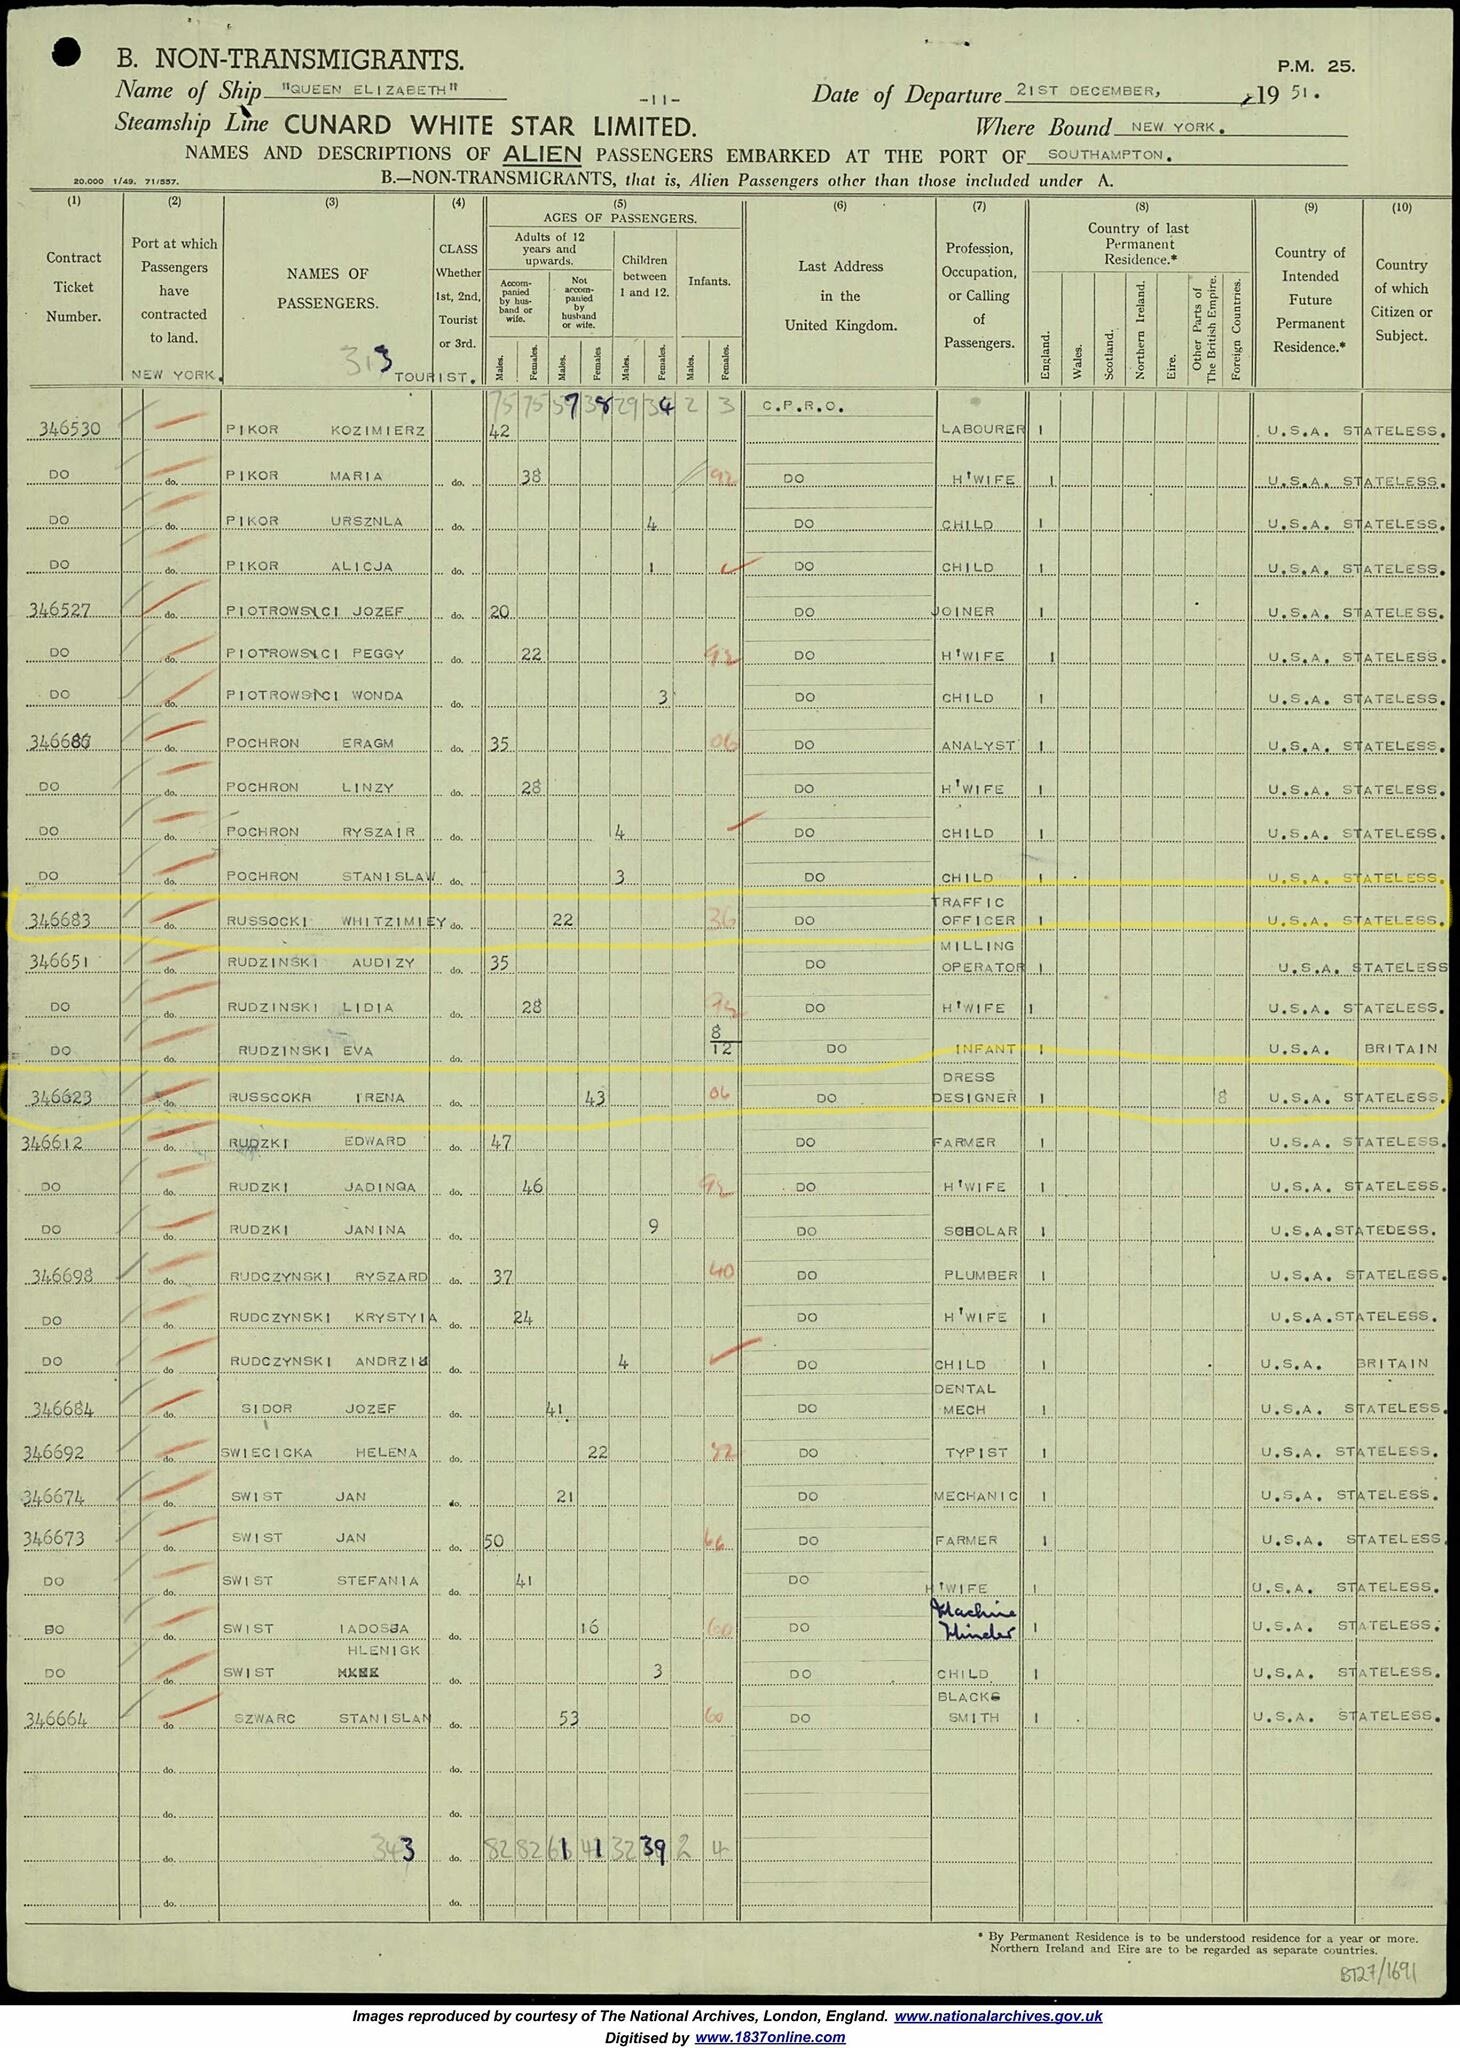 B. NON-TRANSMIGRANTS.
P.M. 25.
Name of Ship "QUEEN ELIZABETH"
-11-
Date of Departure 21ST DECEMBER, 1951.
Steamship Line CUNARD WHITE STAR LIMITED.
Where Bound NEW YORK.
NAMES AND DESCRIPTIONS OF ALIEN PASSENGERS EMBARKED AT THE PORT OF SOUTHAMPTON.
20,000 1/49. 71/557.
B.—NON-TRANSMIGRANTS, that is, Alien Passengers other than those included under A.
(1) (2) (3) (4) (5) (6) (7) (8) (9) (10)
Contract Ticket Number.
Port at which Passengers have contracted to land.
NEW YORK.
NAMES OF PASSENGERS.
313 TOURIST.
CLASS Whether 1st, 2nd, Tourist or 3rd.
AGES OF PASSENGERS.
Adults of 12 years and upwards.
Accompanied by husband or wife.
Not accompanied by husband or wife.
Children between 1 and 12.
Infants.
Males. Females. Males. Females. Males. Females. Males. Females.
Last Address in the United Kingdom.
Profession, Occupation, or Calling of Passengers.
Country of last Permanent Residence.*
England. Wales. Scotland. Northern Ireland. Eire. Other Parts of The British Empire. Foreign Countries.
Country of Intended Future Permanent Residence.*
Country of which Citizen or Subject.
75 75 57 38 29 34 2 3 C.P.R.O.
346530 PIKOR KOZIMIERZ 42 LABOURER 1 U.S.A. STATELESS.
DO do. PIKOR MARIA do. 38 92 DO H'WIFE 1 U.S.A. STATELESS.
DO do. PIKOR URSZNLA do. 4 DO CHILD 1 U.S.A. STATELESS.
DO do. PIKOR ALICJA do. 1 DO CHILD 1 U.S.A. STATELESS.
346527 do. PIOTROWSICI JOZEF do. 20 DO JOINER 1 U.S.A. STATELESS.
DO do. PIOTROWSICI PEGGY do. 22 92 DO H'WIFE 1 U.S.A. STATELESS.
DO do. PIOTROWSICI WONDA do. 3 DO CHILD 1 U.S.A. STATELESS.
346687 do. POCHRON ERAGM do. 35 06 DO ANALYST 1 U.S.A. STATELESS.
DO do. POCHRON LINZY do. 28 DO H'WIFE 1 U.S.A. STATELESS.
DO do. POCHRON RYSZAIR do. 4 DO CHILD 1 U.S.A. STATELESS.
DO do. POCHRON STANISLAW do. 3 DO CHILD 1 U.S.A. STATELESS.
346683 do. RUSSOCKI WHITZIMIEY do. 22 36 DO TRAFFIC OFFICER 1 U.S.A. STATELESS.
346651 do. RUDZINSKI AUDIZY do. 35 DO MILLING OPERATOR 1 U.S.A. STATELESS
DO do. RUDZINSKI LIDIA do. 28 DO H'WIFE 1 U.S.A. STATELESS.
DO do. RUDZINSKI EVA do. 8/12 DO INFANT 1 U.S.A. BRITAIN
346623 do. RUSSCOKA IRENA do. 43 06 DO DRESS DESIGNER 1 8 U.S.A. STATELESS.
346612 do. RUDZKI EDWARD do. 47 DO FARMER 1 U.S.A. STATELESS.
DO do. RUDZKI JADINQA do. 46 92 DO H'WIFE 1 U.S.A. STATELESS.
DO do. RUDZKI JANINA do. 9 DO SCHOLAR 1 U.S.A. STATEDESS.
346698 do. RUDCZYNSKI RYSZARD do. 37 40 DO PLUMBER 1 U.S.A. STATELESS.
DO do. RUDCZYNSKI KRYSTYIA do. 24 DO H'WIFE 1 U.S.A. STATELESS.
DO do. RUDCZYNSKI ANDRZIJ do. 4 DO CHILD 1 U.S.A. BRITAIN
346684 do. SIDOR JOZEF do. 41 DO DENTAL MECH 1 U.S.A. STATELESS.
346692 do. SWIECICKA HELENA do. 22 DO TYPIST 1 U.S.A. STATELESS.
346674 do. SWIST JAN do. 21 DO MECHANIC 1 U.S.A. STATELESS.
346673 do. SWIST JAN do. 50 66 DO FARMER 1 U.S.A. STATELESS.
DO do. SWIST STEFANIA do. 41 DO H'WIFE 1 U.S.A. STATELESS.
DO do. SWIST IADOSJA do. 16 60 DO Machine Minder 1 U.S.A. STATELESS.
DO do. SWIST HLENIGK do. 3 DO CHILD 1 U.S.A. STATELESS.
346664 do. SZWARC STANISLAN do. 53 60 DO BLACKSMITH 1 U.S.A. STATELESS.
do. do.
do. do.
do. 343 do. 82 82 61 41 32 39 2 4
do. do.
* By Permanent Residence is to be understood residence for a year or more.
Northern Ireland and Eire are to be regarded as separate countries.
BT27/1691
Images reproduced by courtesy of The National Archives, London, England. www.nationalarchives.gov.uk
Digitised by www.1837online.com